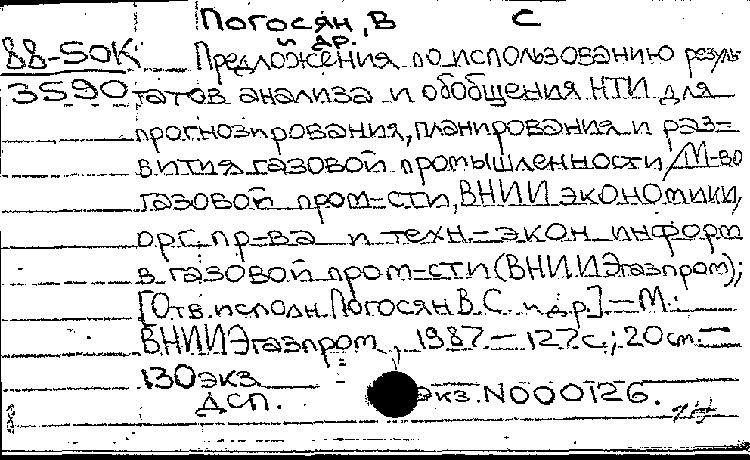 Погосян, В С
и др.
88-50К Предложения по использованию резуль
3590 татов анализа и обобщения НТИ для
прогнозирования, планирования и раз=
вития газовой промышленности / М-во
газовой пром=сти, ВНИИ экономики,
орг. пр=ва и техн.=экон. информ
в газовой пром=сти (ВНИИЭгазпром);
[Отв. исполн. Погосян В.С. и др.] - М.:
ВНИИЭгазпром, 1987. - 127с.; 20см. -
130экз
ДСП. экз. N000126.